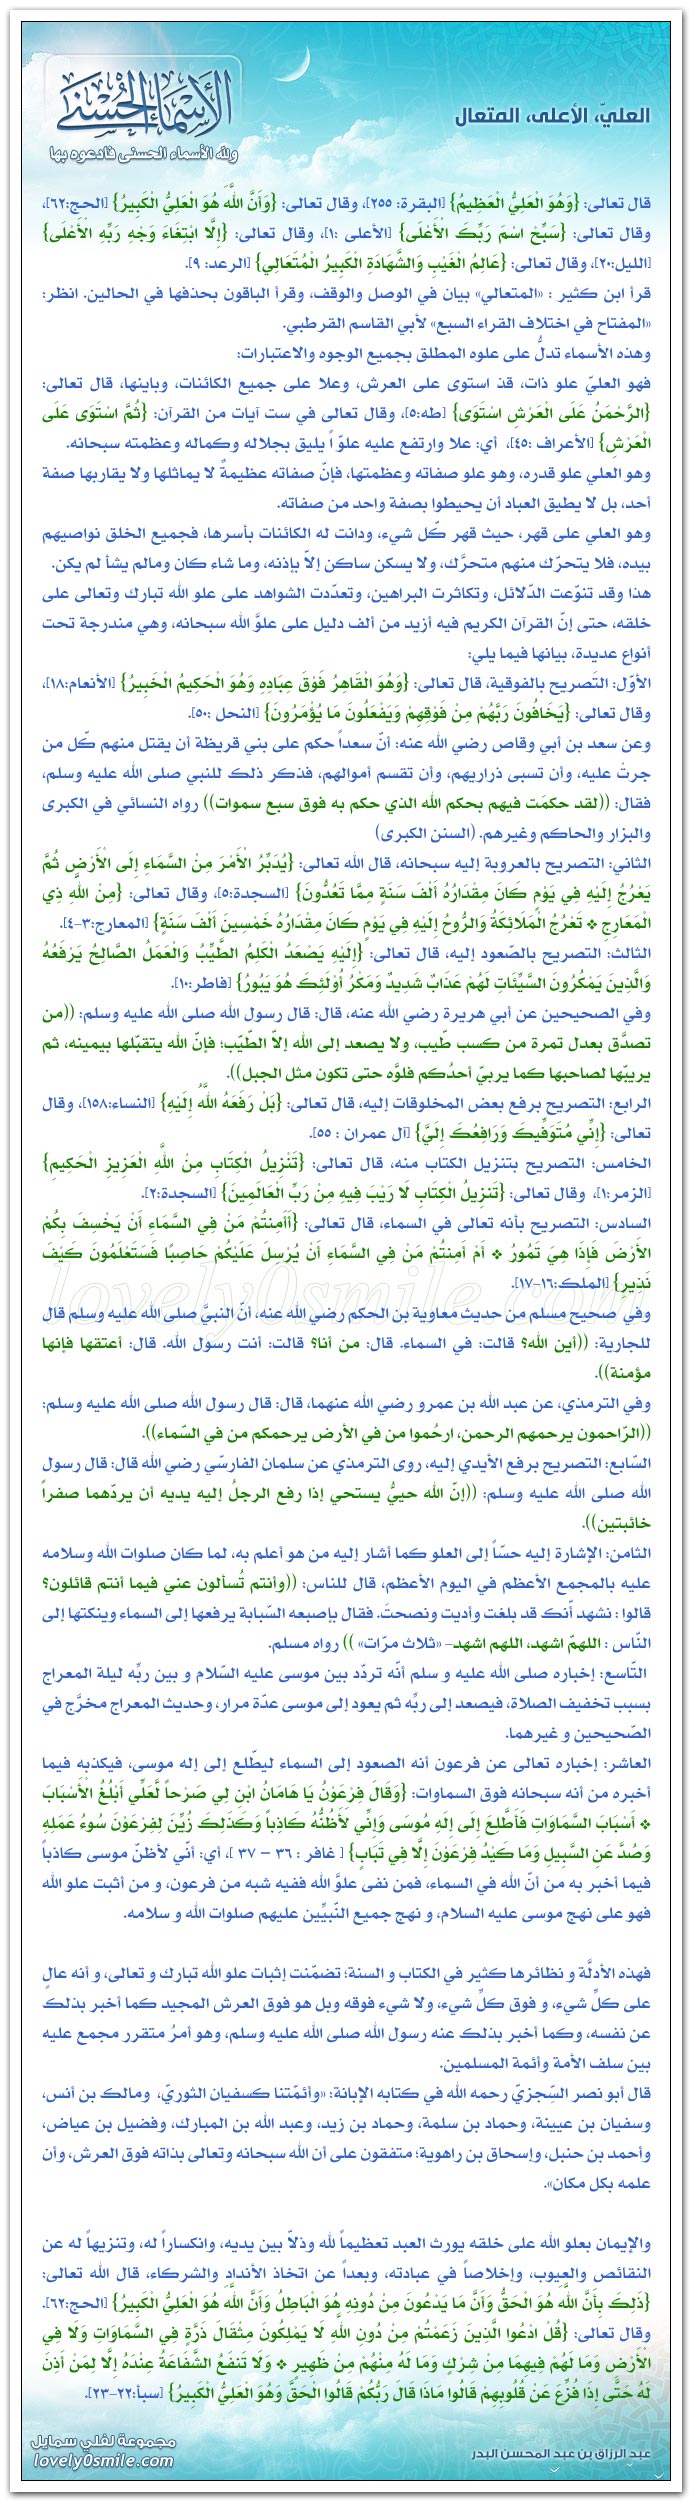 الأسماء الحسنى
ولله الأسماء الحسنى فادعوه بها
العليّ، الأعلى، المتعال
قال تعالى: {وَهُوَ الْعَلِيُّ الْعَظِيمُ} [البقرة: ٢٥٥]، وقال تعالى: {وَأَنَّ اللَّهَ هُوَ الْعَلِيُّ الْكَبِيرُ} [الحج:٦٢]،
وقال تعالى: {سَبِّحْ اسْمَ رَبِّكَ الْأَعْلَى} [الأعلى :١]، وقال تعالى: {إِلَّا ابْتِغَاءَ وَجْهِ رَبِّهِ الْأَعْلَى}
[الليل:٢٠]، وقال تعالى: {عَالِمُ الْغَيْبِ وَالشَّهَادَةِ الْكَبِيرُ الْمُتَعَالِي} [الرعد: ٩].
قرأ ابن كثير : «المتعالي» بيان في الوصل والوقف، وقرأ الباقون بحذفها في الحالين. انظر:
«المفتاح في اختلاف القراء السبع» لأبي القاسم القرطبي.
وهذه الأسماء تدلُّ على علوه المطلق بجميع الوجوه والاعتبارات:
فهو العليّ علو ذات، قد استوى على العرش، وعلا على جميع الكائنات، وباينها، قال تعالى:
{الرَّحْمَنُ عَلَى الْعَرْشِ اسْتَوَى} [طه:٥]، وقال تعالى في ست آيات من القرآن: {ثُمَّ اسْتَوَى عَلَى
الْعَرْشِ} [الأعراف :٤٥]، أي: علا وارتفع عليه علوّ اً يليق بجلاله وكماله وعظمته سبحانه.
وهو العلي علو قدره، وهو علو صفاته وعظمتها، فإنّ صفاته عظيمةٌ لا يماثلها ولا يقاربها صفة
أحد، بل لا يطيق العباد أن يحيطوا بصفة واحد من صفاته.
وهو العلي على قهر، حيث قهر كّل شيء، ودانت له الكائنات بأسرها، فجميع الخلق نواصيهم
بيده، فلا يتحرّك منهم متحرَّك، ولا يسكن ساكن إلاّ بإذنه، وما شاء كان ومالم يشأ لم يكن.
هذا وقد تنوّعت الدّلائل، وتكاثرت البراهين، وتعدّدت الشواهد على علو الله تبارك وتعالى على
خلقه، حتى إنّ القرآن الكريم فيه أزيد من ألف دليل على علوَّ الله سبحانه، وهي مندرجة تحت
أنواع عديدة، بيانها فيما يلي:
الأوّل: التّصريح بالفوقية، قال تعالى: {وَهُوَ الْقَاهِرُ فَوْقَ عِبَادِهِ وَهُوَ الْحَكِيمُ الْخَبِيرُ} [الأنعام:١٨]،
وقال تعالى: {يَخَافُونَ رَبَّهُمْ مِنْ فَوْقِهِمْ وَيَفْعَلُونَ مَا يُؤْمَرُونَ} [النحل :٥٠].
وعن سعد بن أبي وقاص رضي الله عنه: أنّ سعداً حكم على بني قريظة أن يقتل منهم كّل من
جرتْ عليه، وأن تسبى ذراريهم، وأن تقسم أموالهم، فذكر ذلك للنبي صلى الله عليه وسلم،
فقال: ((لقد حكمَت فيهم بحكم الله الذي حكم به فوق سبع سموات)) رواه النسائي في الكبرى
والبزار والحاكم وغيرهم. (السنن الكبرى)
الثاني: التصريح بالعروبة إليه سبحانه، قال الله تعالى: {يُدَبِّرُ الْأَمْرَ مِنْ السَّمَاءِ إِلَى الْأَرْضِ ثُمَّ
يَعْرُجُ إِلَيْهِ فِي يَوْمٍ كَانَ مِقْدَارُهُ أَلْفَ سَنَةٍ مِمَّا تَعُدُّونَ} [السجدة:٥]، وقال تعالى: {مِنْ اللَّهِ ذِي
الْمَعَارِجِ * تَعْرُجُ الْمَلَائِكَةُ وَالرُّوحُ إِلَيْهِ فِي يَوْمٍ كَانَ مِقْدَارُهُ خَمْسِينَ أَلْفَ سَنَةٍ} [المعارج:٣-٤].
الثالث: التصريح بالصّعود إليه، قال تعالى: {إِلَيْهِ يَصْعَدُ الْكَلِمُ الطَّيِّبُ وَالْعَمَلُ الصَّالِحُ يَرْفَعُهُ
وَالَّذِينَ يَمْكُرُونَ السَّيِّئَاتِ لَهُمْ عَذَابٌ شَدِيدٌ وَمَكْرُ أُوْلَئِكَ هُوَ يَبُورُ} [فاطر:١٠].
وفي الصحيحين عن أبي هريرة رضي الله عنه، قال: قال رسول الله صلى الله عليه وسلم: ((من
تصدَّق بعدل تمرة من كسب طّيب، ولا يصعد إلى الله إلاّ الطّيّب؛ فإنّ الله يتقبّلها بيمينه، ثم
يربيّها لصاحبها كما يربيّ أحدُكم فلوَّه حتى تكون مثل الجبل)).
الرابع: التصريح برفع بعض المخلوقات إليه، قال تعالى: {بَلْ رَفَعَهُ اللَّهُ إِلَيْهِ} [النساء:١٥٨]، وقال
تعالى: {إِنِّي مُتَوَفِّيكَ وَرَافِعُكَ إِلَيَّ} [آل عمران : ٥٥].
الخامس: التصريح بتنزيل الكتاب منه، قال تعالى: {تَنْزِيلُ الْكِتَابِ مِنْ اللَّهِ الْعَزِيزِ الْحَكِيمِ}
[الزمر:١]، وقال تعالى: {تَنْزِيلُ الْكِتَابِ لَا رَيْبَ فِيهِ مِنْ رَبِّ الْعَالَمِينَ} [السجدة:٢].
السادس: التصريح بأنه تعالى في السماء، قال تعالى: {أَأَمِنتُمْ مَنْ فِي السَّمَاءِ أَنْ يَخْسِفَ بِكُمْ
الْأَرْضَ فَإِذَا هِيَ تَمُورُ * أَمْ أَمِنتُمْ مَنْ فِي السَّمَاءِ أَنْ يُرْسِلَ عَلَيْكُمْ حَاصِبًا فَسَتَعْلَمُونَ كَيْفَ
نَذِيرِ} [الملك:١٦-١٧].
وفي صحيح مسلم من حديث معاوية بن الحكم رضي الله عنه، أنّ النبيَّ صلى الله عليه وسلم قال
للجارية: ((أين الله؟ قالت: في السماء. قال: من أنا؟ قالت: أنت رسول الله. قال: أعتقها فإنها
مؤمنة)).
وفي الترمذي، عن عبد الله بن عمرو رضي الله عنهما، قال: قال رسول الله صلى الله عليه وسلم:
((الرّاحمون يرحمهم الرحمن، ارحُموا من في الأرض يرحمكم من في السّماء)).
السّابع: التصريح برفع الأيدي إليه، روى الترمذي عن سلمان الفارسّي رضي الله قال: قال رسول
الله صلى الله عليه وسلم: ((إنّ الله حييُّ يستحي إذا رفع الرجلُ إليه يديه أن يردّهما صفراً
خائبتين)).
الثامن: الإشارة إليه حسّاً إلى العلو كما أشار إليه من هو أعلم به، لما كان صلوات الله وسلامه
عليه بالمجمع الأعظم في اليوم الأعظم، قال للناس: ((وأنتم تُسألون عني فيما أنتم قائلون؟
قالوا : نشهد أنّك قد بلغت وأديت ونصحتَ. فقال بإصبعه السّبابة يرفعها إلى السماء وينكتها إلى
النّاس : اللهمّ اشهد، اللهم اشهد- «ثلاث مرّات» )) رواه مسلم.
التّاسع: إخباره صلى الله عليه و سلم أنّه تردّد بين موسى عليه السّلام و بين ربِّه ليلة المعراج
بسبب تخفيف الصلاة، فيصعد إلى ربِّه ثم يعود إلى موسى عدّة مرار، وحديث المعراج مخرَّج في
الصّحيحين و غيرهما.
العاشر: إخباره تعالى عن فرعون أنه الصعود إلى السماء ليطّلع إلى إله موسى، فيكذبه فيما
أخبره من أنه سبحانه فوق السماوات: {وَقَالَ فِرْعَوْنُ يَا هَامَانُ ابْنِ لِي صَرْحاً لَّعَلِّي أَبْلُغُ الْأَسْبَابَ
* أَسْبَابَ السَّمَاوَاتِ فَأَطَّلِعَ إِلَى إِلَهِ مُوسَى وَإِنِّي لَأَظُنُّهُ كَاذِباً وَكَذَلِكَ زُيِّنَ لِفِرْعَوْنَ سُوءُ عَمَلِهِ
وَصُدَّ عَنِ السَّبِيلِ وَمَا كَيْدُ فِرْعَوْنَ إِلَّا فِي تَبَابٍ} [ غافر : ٣٦ – ٣٧ ]، أي: أنّي لأظنّ موسى كاذباً
فيما أخبر به من أنّ الله في السماء، فمن نفى علوَّ الله ففيه شبه من فرعون، و من أثبت علو الله
فهو على نهج موسى عليه السلام، و نهج جميع النّبيِّين عليهم صلوات الله و سلامه.
فهذه الأدلَّة و نظائرها كثير في الكتاب و السنة؛ تضمّنت إثبات علو الله تبارك و تعالى، و أنه عالٍ
على كلِّ شيء، و فوق كلِّ شيء، ولا شيء فوقه وبل هو فوق العرش المجيد كما أخبر بذلك
عن نفسه، وكما أخبر بذلك عنه رسول الله صلى الله عليه وسلم، وهو أمرُ متقرر مجمع عليه
بين سلف الأمة وأئمة المسلمين.
قال أبو نصر السِّجزيّ رحمه الله في كتابه الإبانة: «وأئمّتنا كسفيان الثوريّ، ومالك بن أنس،
وسفيان بن عيينة، وحماد بن سلمة، وحماد بن زيد، وعبد الله بن المبارك، وفضيل بن عياض،
وأحمد بن حنبل، وإسحاق بن راهوية؛ متفقون على أن الله سبحانه وتعالى بذاته فوق العرش، وأن
علمه بكل مكان».
والإيمان بعلو الله على خلقه يورث العبد تعظيماً لله وذلّاً بين يديه، وانكساراً له، وتنزيهاً له عن
النقائص والعيوب، وإخلاصاً في عبادته، وبعداً عن اتخاذ الأنداد والشركاء، قال الله تعالى:
{ذَلِكَ بِأَنَّ اللَّهَ هُوَ الْحَقُّ وَأَنَّ مَا يَدْعُونَ مِنْ دُونِهِ هُوَ الْبَاطِلُ وَأَنَّ اللَّهَ هُوَ الْعَلِيُّ الْكَبِيرُ} [الحج:٦٢].
وقال تعالى: {قُلْ ادْعُوا الَّذِينَ زَعَمْتُمْ مِنْ دُونِ اللَّهِ لَا يَمْلِكُونَ مِثْقَالَ ذَرَّةٍ فِي السَّمَاوَاتِ وَلَا فِي
الْأَرْضِ وَمَا لَهُمْ فِيهِمَا مِنْ شِرْكٍ وَمَا لَهُ مِنْهُمْ مِنْ ظَهِيرٍ * وَلَا تَنفَعُ الشَّفَاعَةُ عِنْدَهُ إِلَّا لِمَنْ أَذِنَ
لَهُ حَتَّى إِذَا فُزِّعَ عَنْ قُلُوبِهِمْ قَالُوا مَاذَا قَالَ رَبُّكُمْ قَالُوا الْحَقَّ وَهُوَ الْعَلِيُّ الْكَبِيرُ} [سبأ:٢٢-٢٣].
عبد الرزاق بن عبد المحسن البدر
مجموعة لفلي سمايل
lovely0smile.com